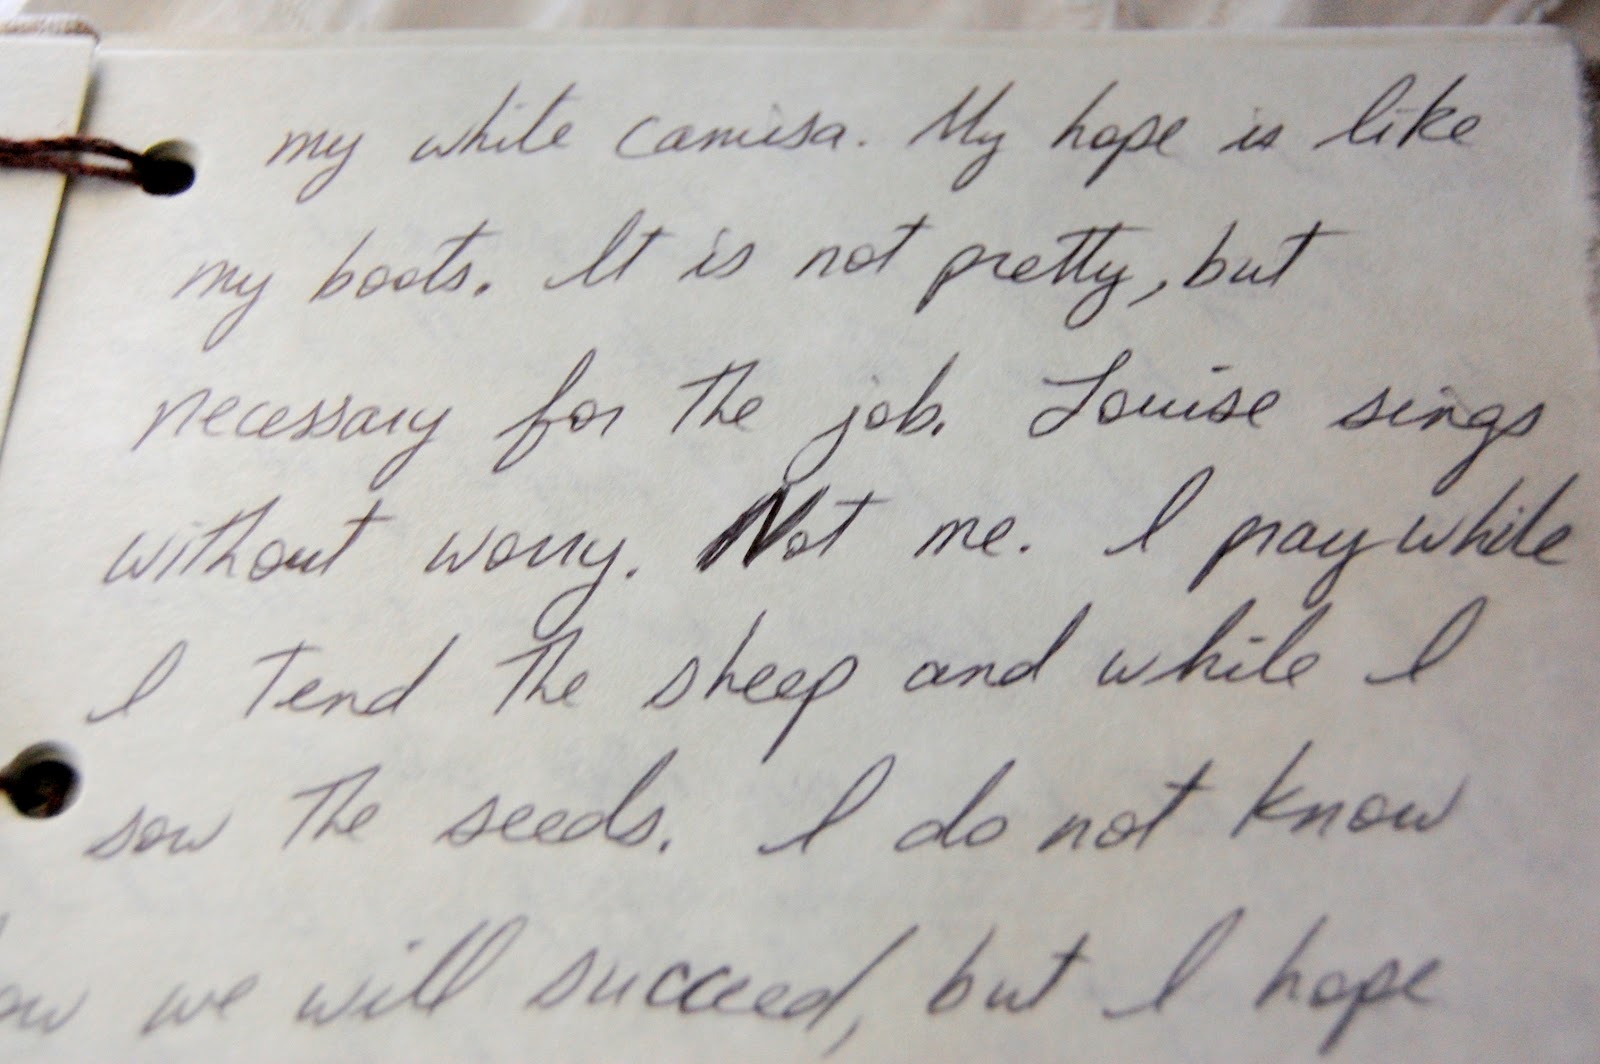 my white camisa. My hope is like
my boots. It is not pretty, but
necessary for the job. Louise sings
without worry. Not me. I pray while
I tend the sheep and while I
sow the seeds. I do not know
how we will succeed, but I hope